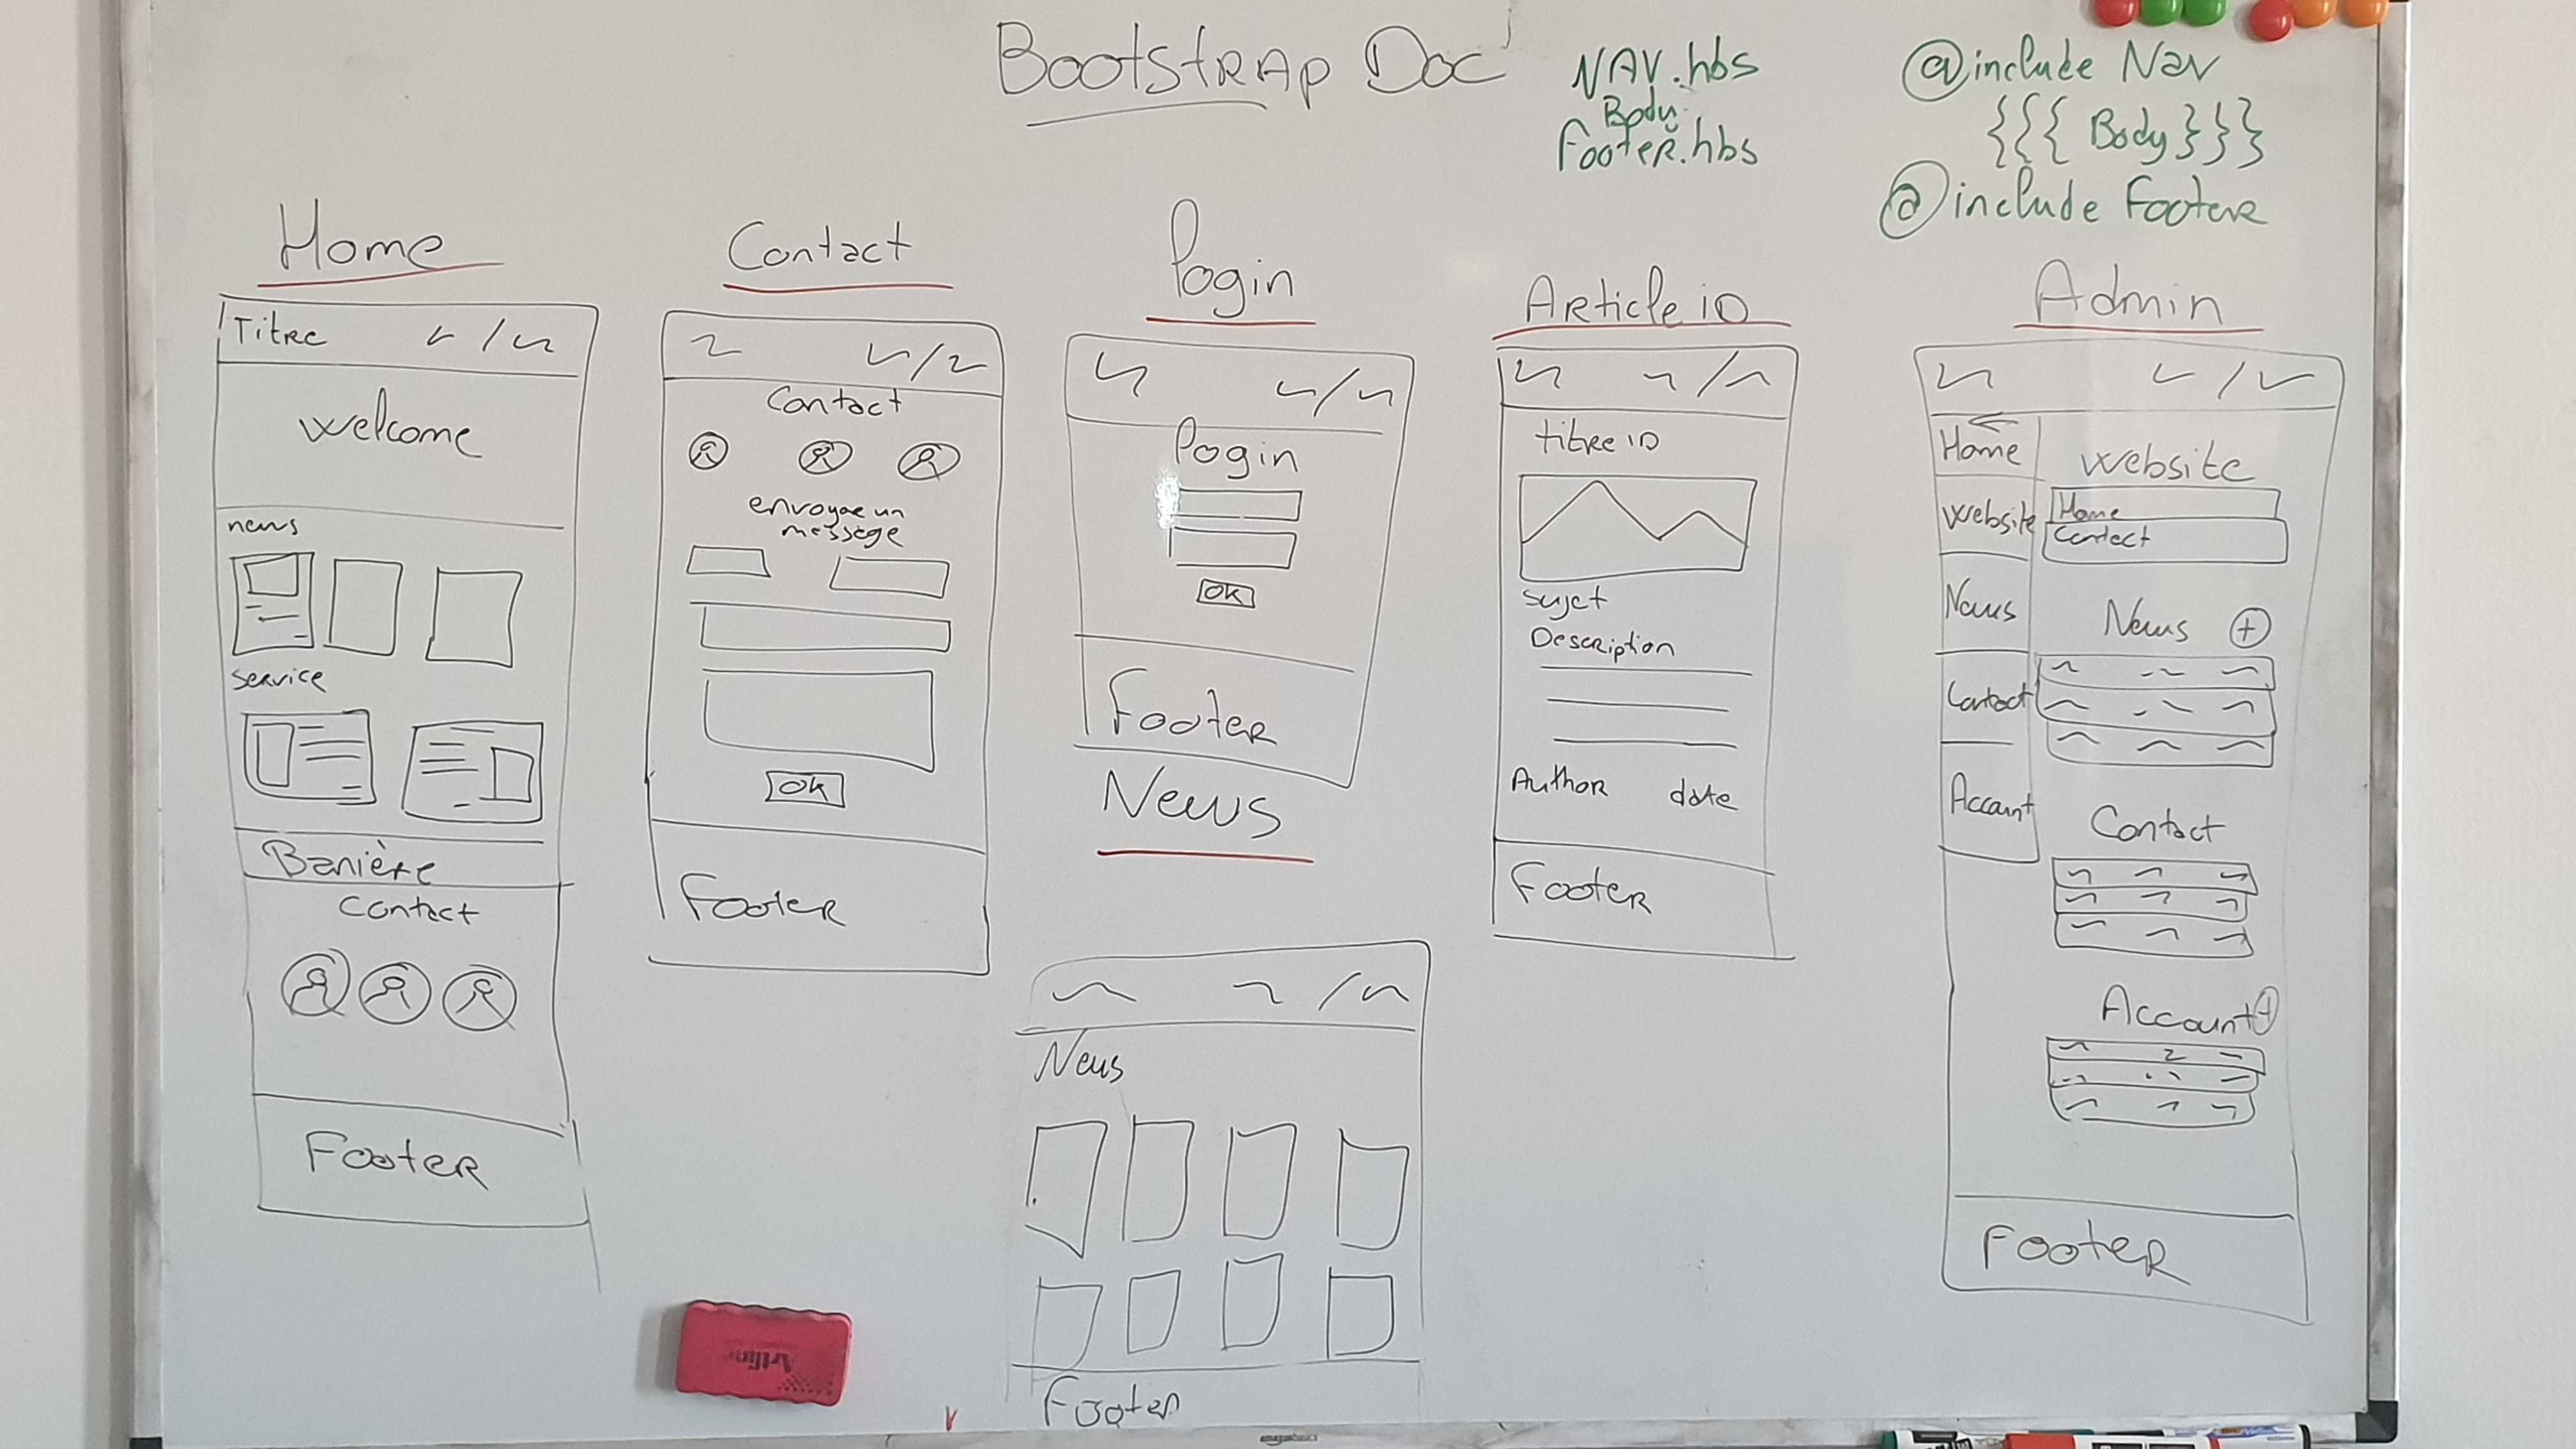 Bootstrap Doc
NAV.hbs
Body
Footer.hbs
@include Nav
{{{ Body }}}
@include Footer
Home
Titre
welcome
news
service
Banière
Contact
Footer
Contact
Contact
message
OK
Footer
Login
Login
OK
Footer
News
News
Footer
Article ID
titre ID
sujet
Description
Author date
Footer
Admin
Home
website
News
Contact
Account
website
Home
Contact
News +
Contact
Account +
Footer
Artline
amazonbasics